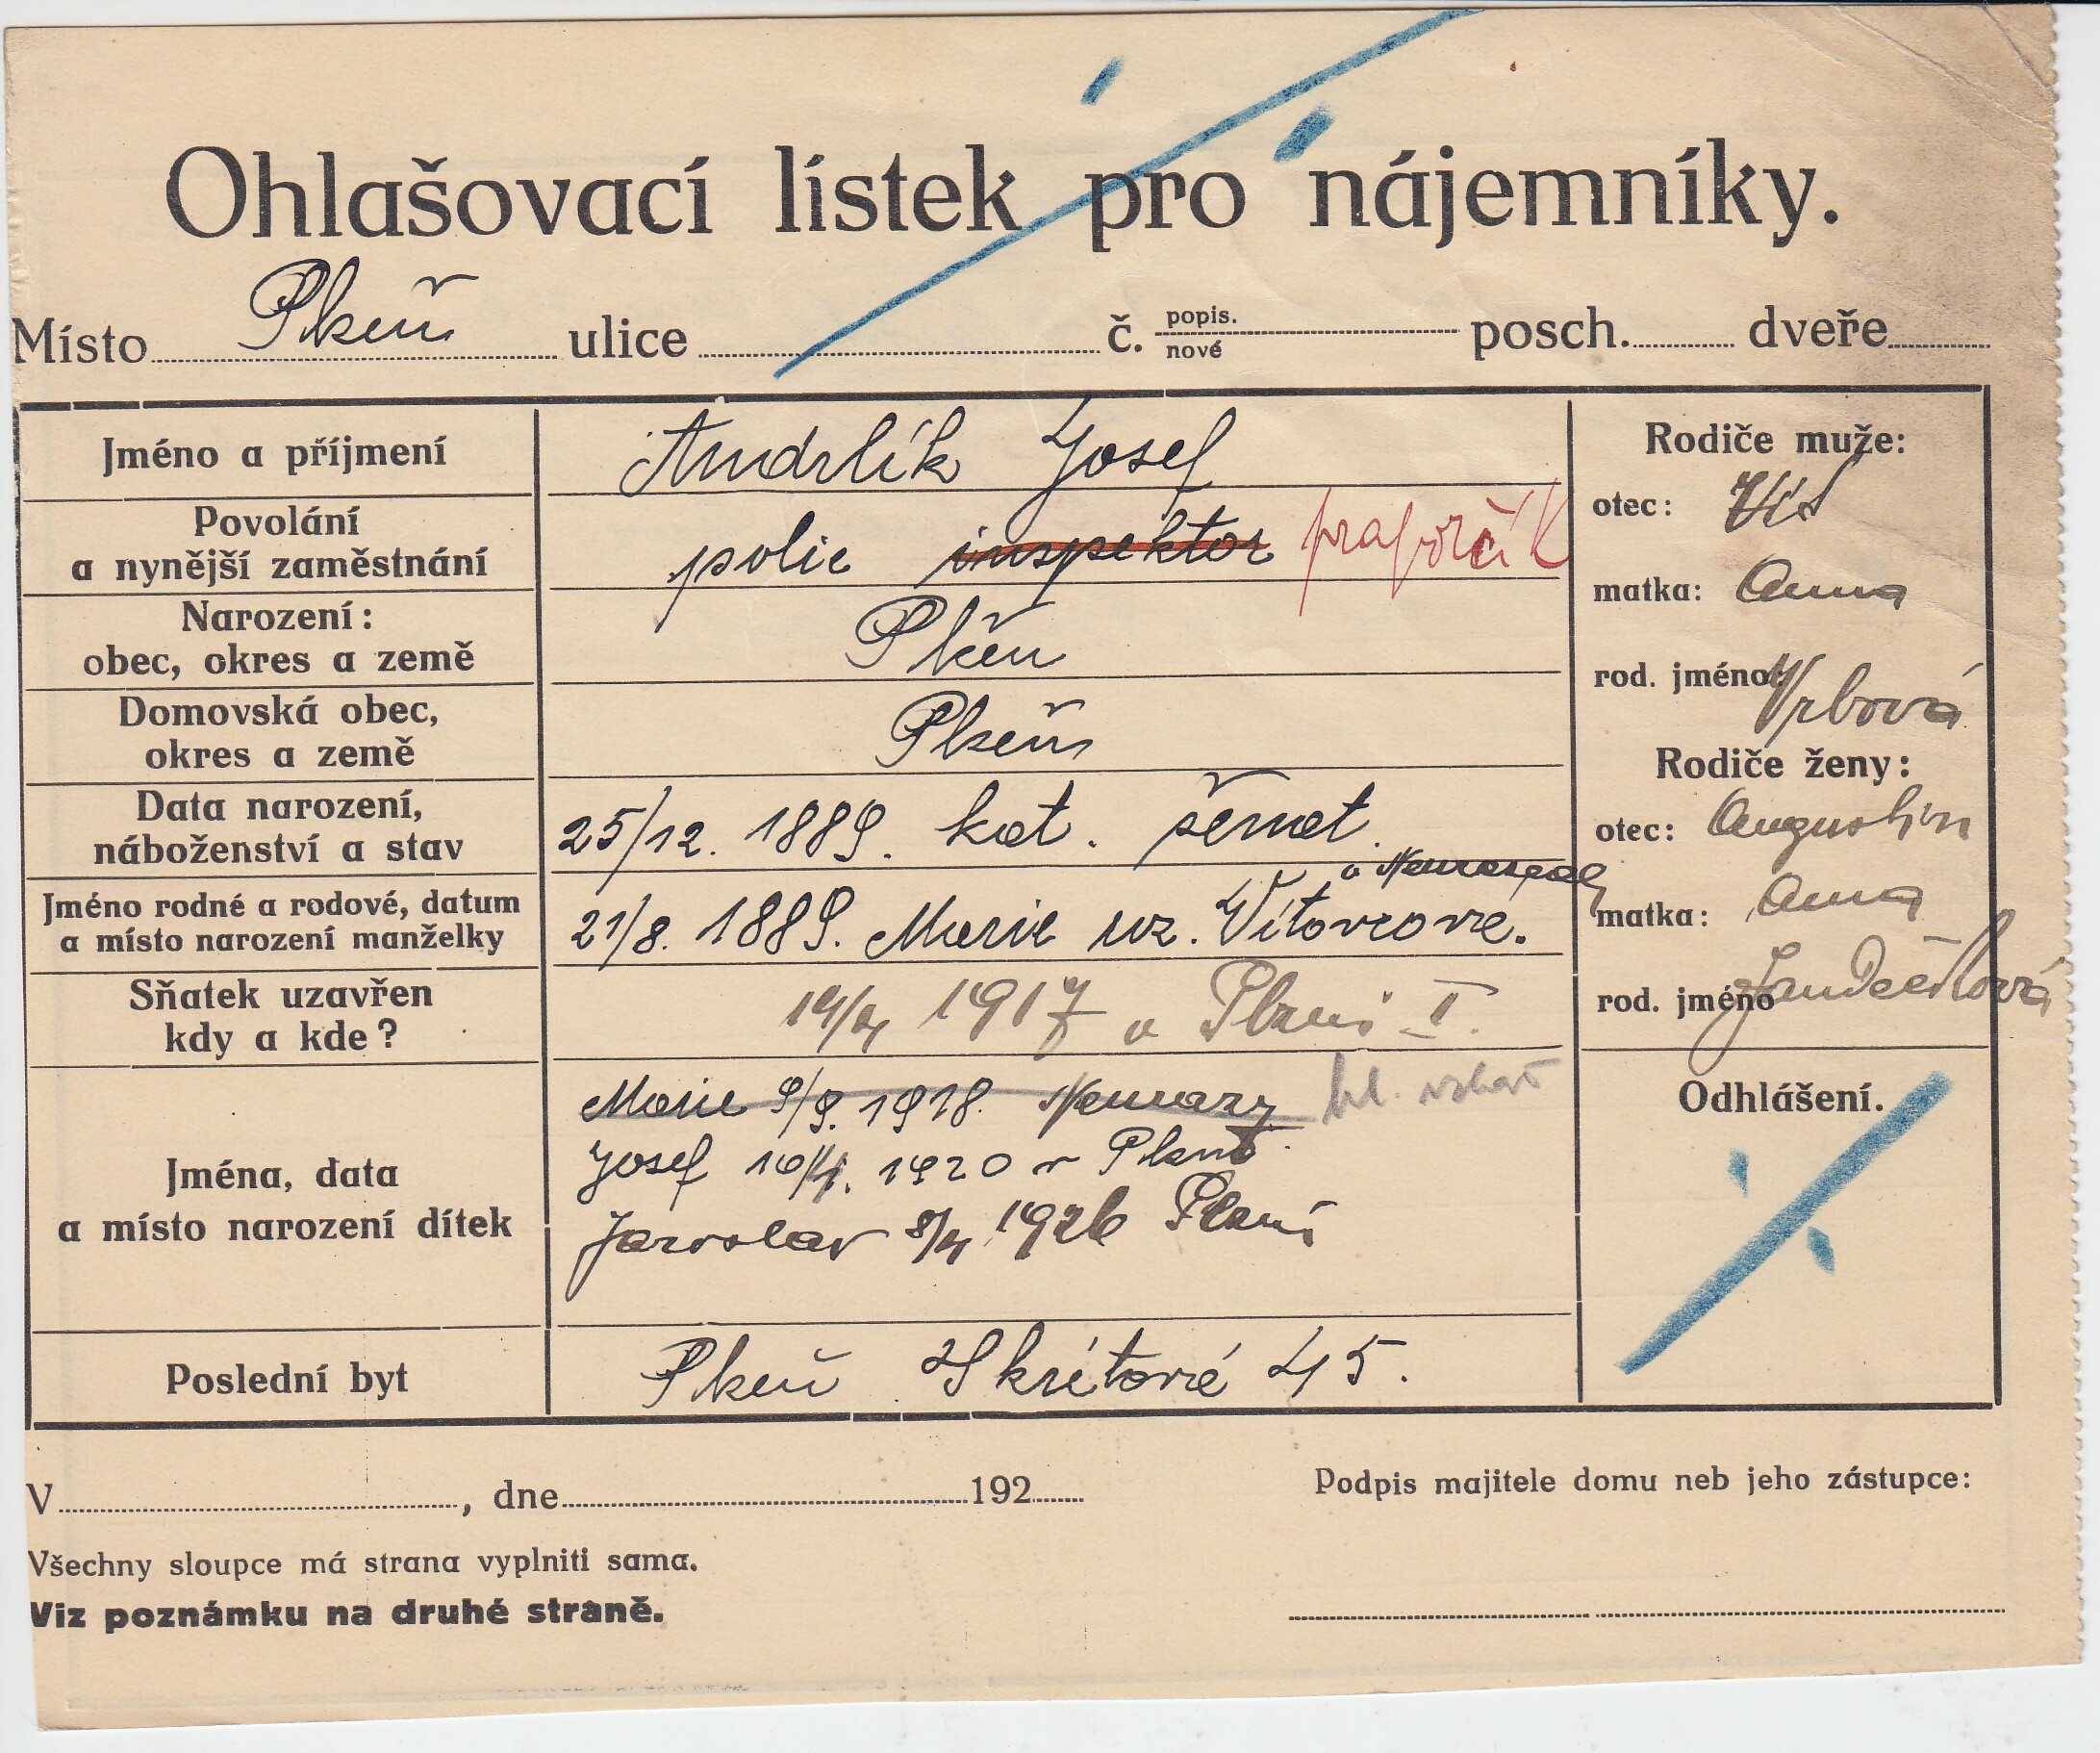 Ohlašovací lístek pro nájemníky.
Místo Plzeň ulice č. popis. nové posch. dveře
Jméno a příjmení
Andrlík Josef
Povolání
a nynější zaměstnání
polic inspektor praporčík
Narození:
obec, okres a země
Plzeň
Domovská obec,
okres a země
Plzeň
Data narození,
náboženství a stav
25/12. 1889. kat. ženat.
Jméno rodné a rodové, datum
a místo narození manželky
21/8. 1889. Marie roz. Vítovcová.
Sňatek uzavřen
kdy a kde?
1917 v Plzni I.
Jména, data
a místo narození dítek
Marie 9/9. 1918.
Josef 10/4. 1920 v Plzni
Jaroslav 8/4 1926 Plzni
Poslední byt
Plzeň Skrétová 45.
Rodiče muže:
otec: Vít
matka: Anna
rod. jméno: Vrbová
Rodiče ženy:
otec: Augustin
matka: Anna
rod. jméno
Odhlášení.
V , dne 192
Podpis majitele domu neb jeho zástupce:
Všechny sloupce má strana vyplniti sama.
Viz poznámku na druhé straně.